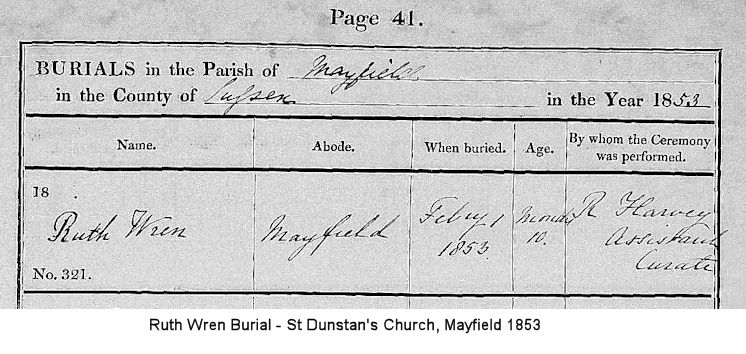 Page 41.
BURIALS in the Parish of Mayfield
in the County of Sussex in the Year 1853
Name. Abode. When buried. Age. By whom the Ceremony was performed.
18
Ruth Wren Mayfield Feby 1 1853 Months 10. R Harvey Assistant Curate
No. 321.
Ruth Wren Burial - St Dunstan's Church, Mayfield 1853